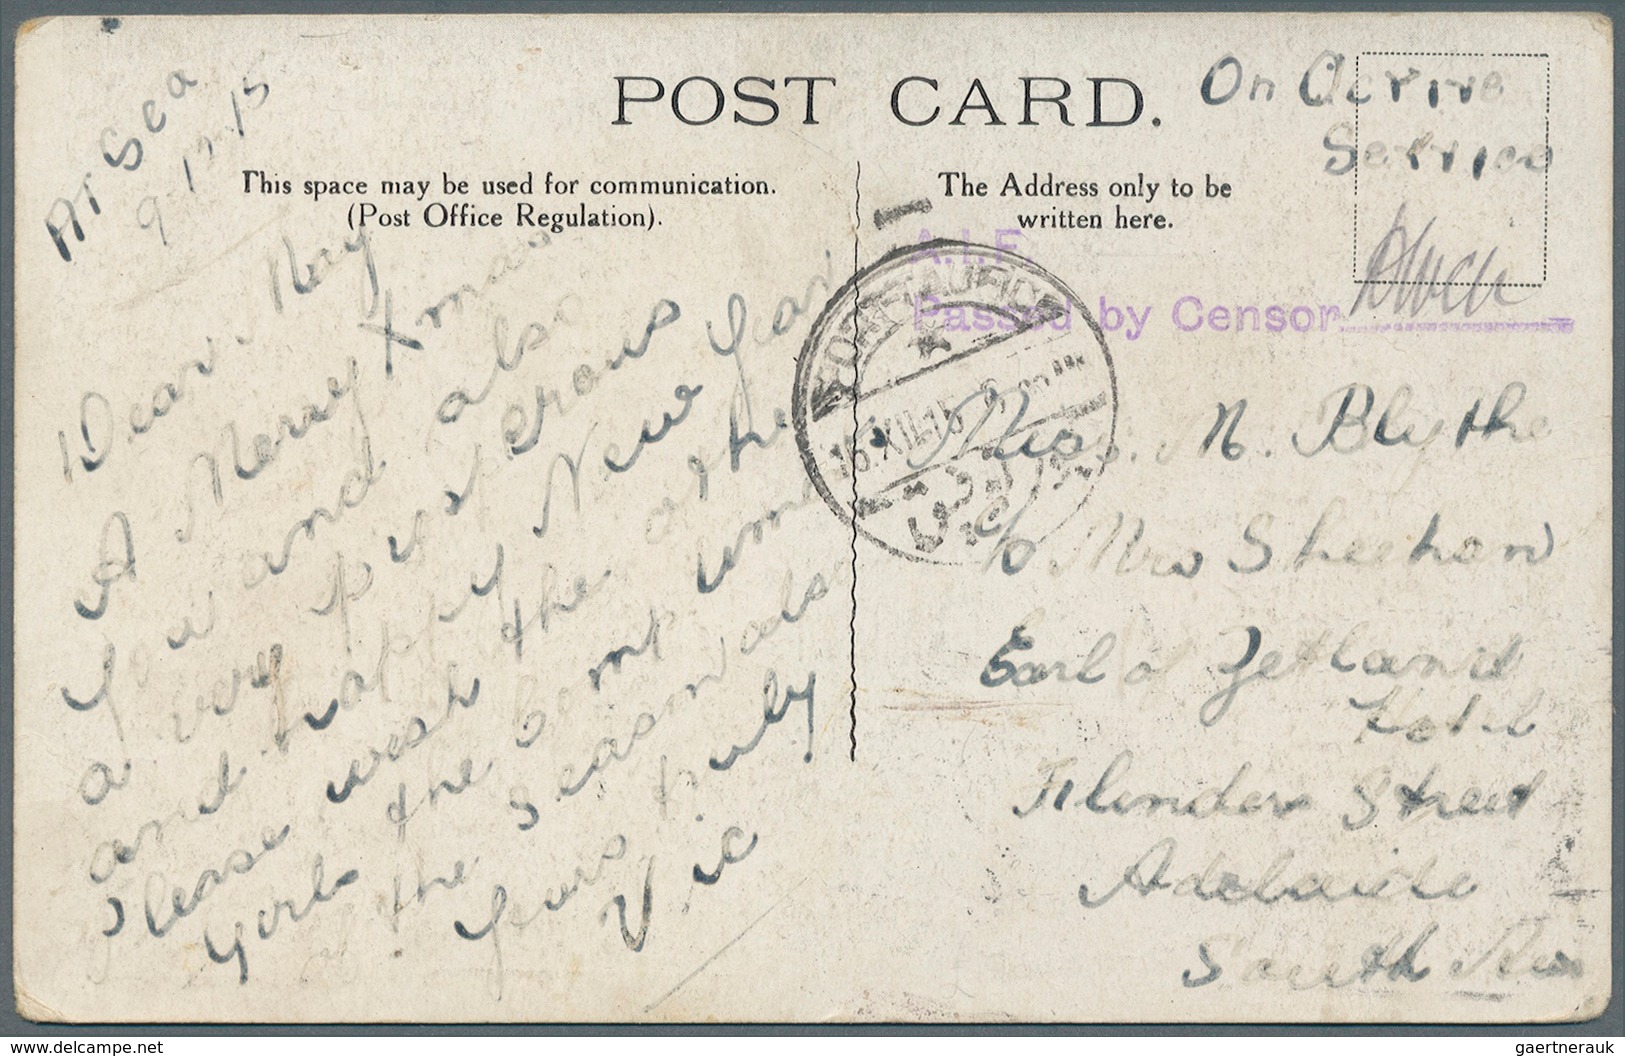 POST CARD.
On Active
Service
This space may be used for communication.
(Post Office Regulation).
The Address only to be
written here.
At Sea
9-12-15
Dear May
A Merry Xmas
you and also
a very prosperous
and happy New Year
Please wish the other
girls the compliments
of the season also
Yours truly
Vic
A.I.F.
Passed by Censor
PORT TAUFIQ
16.XII.15
Miss. M. Blythe
c/o Mrs Sheehan
Earl of Zetland
Hotel
Flinders Street
Adelaide
South Aus
www.delcampe.net
gaertnerauk